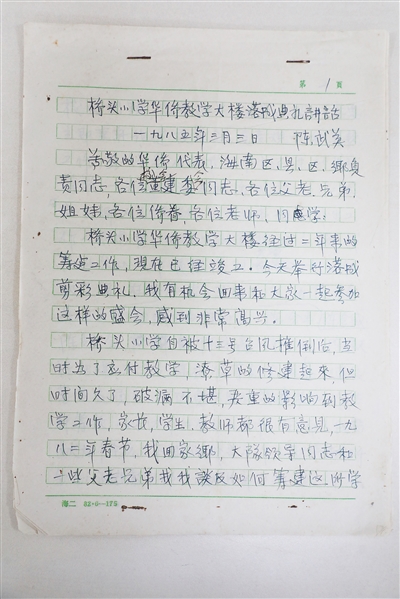 第 1 頁
桥头小学华侨教学大楼落成典礼講話
一九八五年二月三日 陈武英
尊敬的华侨代表,海南区、县、区、鄉負
责同志,各位董建会同志,各位父老、兄弟、
姐妹,各位侨眷,各位老师、同学:
桥头小学华侨教学大楼经过二年車的
筹建工作,現在已经竣工。今天举行落成
剪彩典礼,我有机会回来和大家一起参加
这样的盛会,感到非常高兴。
桥头小学自被十三号台风摧倒后,当
时为了应付教学,潦草的修建起來,但
时间久了,破漏不堪,严重的影响到教
学工作,家长,学生,教师都很有意見,一九
八二年春节,我回家鄉,大隊领导同志和
一些父老兄弟找我談及如何筹建这所学
海二 82·6—175